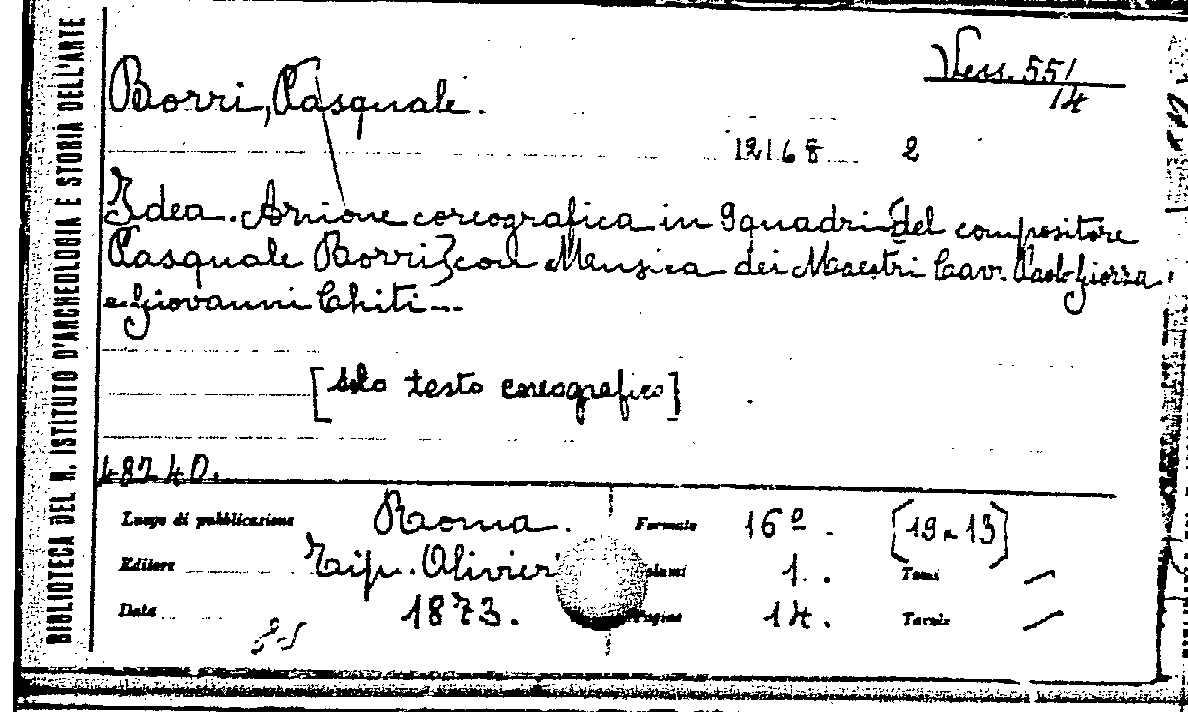 BIBLIOTECA DEL R. ISTITUTO D'ARCHEOLOGIA E STORIA DELL'ARTE
Vess. 551/14
Borri, Pasquale.
12168 2
Idea. Azione coreografica in 9 quadri del compositore
Pasquale Borri con Musica dei Maestri Cav. Paolo Giorza
e Giovanni Chiti
[solo testo coreografico]
48240.
Luogo di pubblicazione Roma. Formato 16º. [19 x 13]
Editore Tip. Olivieri Volumi 1. Tomi —
Data 1873. Pagine 14. Tavole —